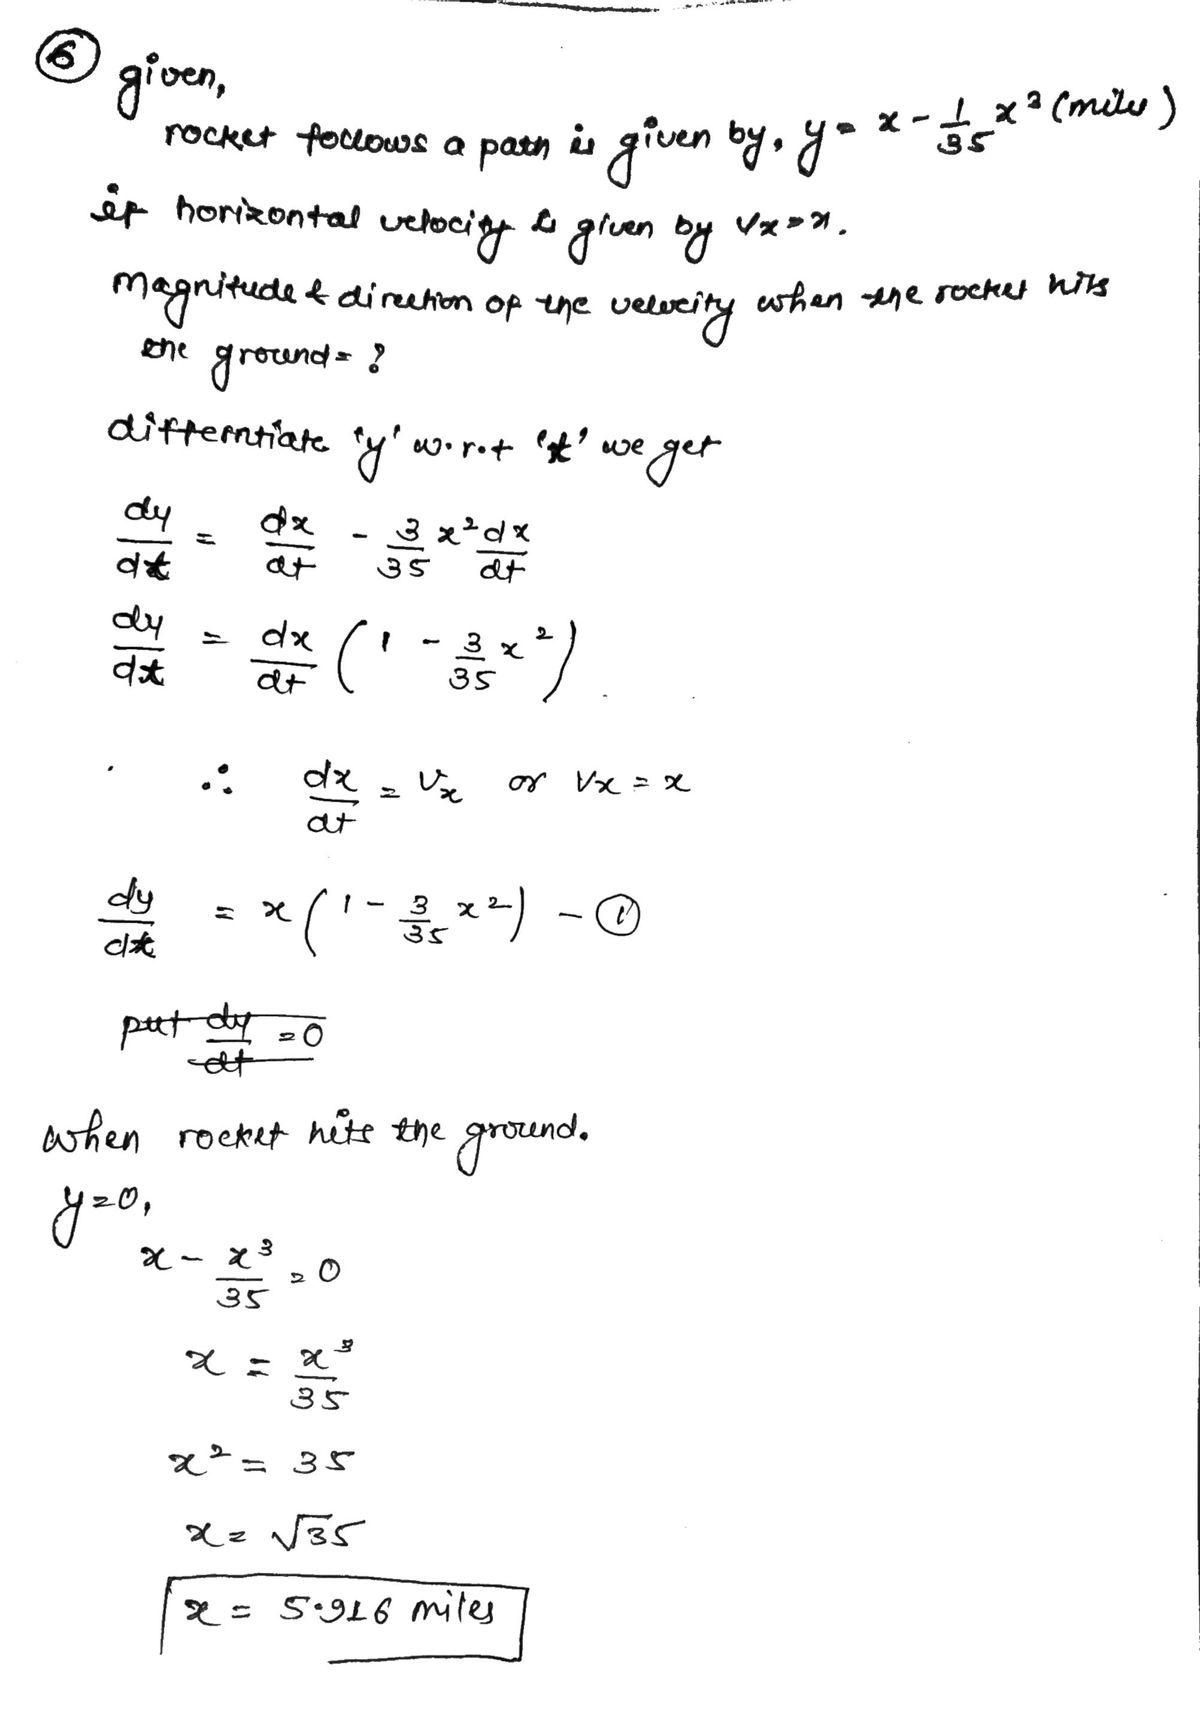 ⑥ given,
rocket follows a path is given by, y = x - 1/35 x³ (miles)
if horizontal velocity is given by Vx = x.
magnitude & direction of the velocity when the rocket hits
the ground = ?
differntiate 'y' w.r.t 't' we get
dy/dt = dx/dt - 3/35 x² dx/dt
dy/dt = dx/dt (1 - 3/35 x²)
∴ dx/dt = Vx or Vx = x
dy/dt = x(1 - 3/35 x²) - ①
put dy/dt = 0
when rocket hits the ground.
y = 0,
x - x³/35 = 0
x = x³/35
x² = 35
x = √35
x = 5.916 miles